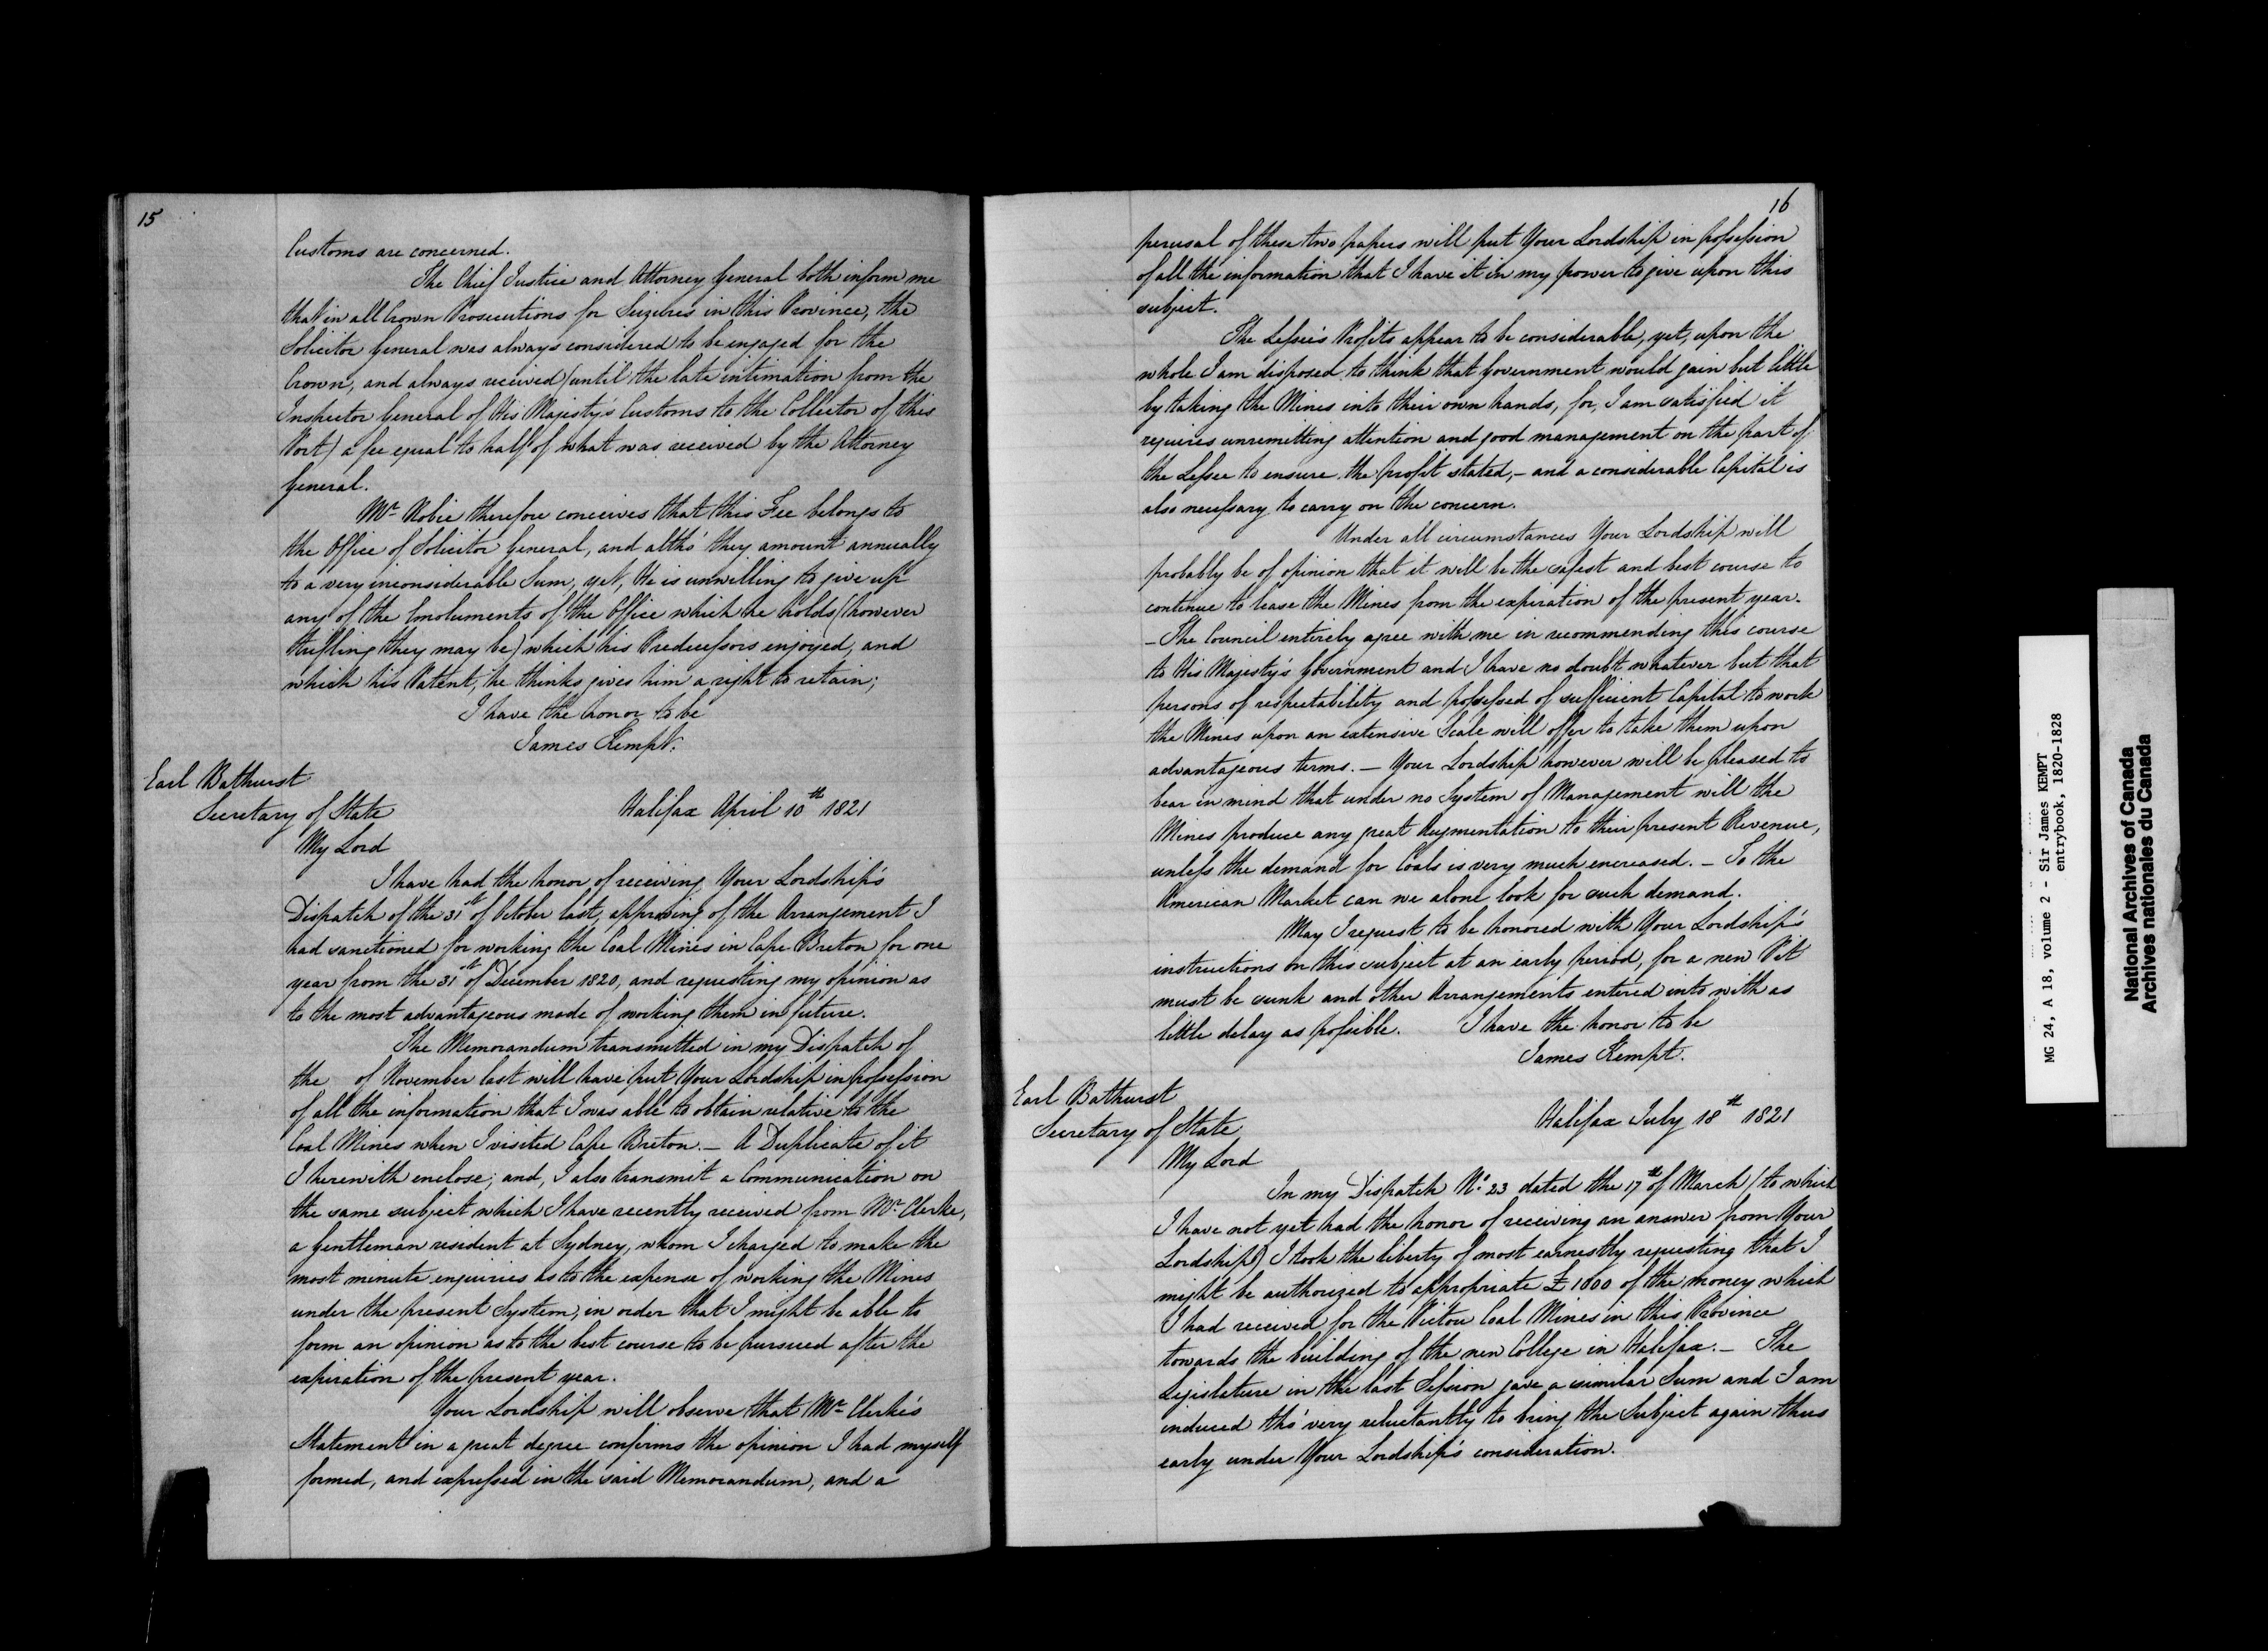 15
Customs are concerned.
The Chief Justice and Attorney General both inform me
that in all Crown Prosecutions for Seizures in this Province, the
Solicitor General was always considered to be engaged for the
Crown, and always received (until the late intimation from the
Inspector General of His Majesty's Customs to the Collector of this
Port) a fee equal to half of what was received by the Attorney
General.
Mr. Robie therefore conceives that this Fee belongs to
the Office of Solicitor General, and altho' they amount annually
to a very inconsiderable Sum, yet, He is unwilling to give up
any of the Emoluments of the Office which he holds (however
trifling they may be) which his Predecessors enjoyed, and
which his Patent, he thinks gives him a right to retain;
I have the honor to be
James Kempt.
Earl Bathurst
Secretary of State
Halifax April 10th 1821
My Lord
I have had the honor of receiving Your Lordship's
Dispatch of the 31st of October last, approving of the Arrangement I
had sanctioned for working the Coal Mines in Cape Breton for one
year from the 31st of December 1820, and requesting my opinion as
to the most advantageous mode of working them in future.
The Memorandum transmitted in my Dispatch of
the of November last will have put Your Lordship in possession
of all the information that I was able to obtain relative to the
Coal Mines when I visited Cape Breton. — A Duplicate of it
I herewith enclose; and, I also transmit a Communication on
the same subject which I have recently received from Mr. Clerke,
a Gentleman resident at Sydney, whom I charged to make the
most minute enquiries as to the expense of working the Mines
under the present System, in order that I might be able to
form an opinion as to the best course to be pursued after the
expiration of the present year.
Your Lordship will observe that Mr. Clerke's
Statement in a great degree confirms the opinion I had myself
formed, and expressed in the said Memorandum, and a
16
perusal of these two papers will put Your Lordship in possession
of all the information that I have it in my power to give upon this
subject.
The Lessee's Profits appear to be considerable, yet, upon the
whole I am disposed to think that Government would gain but little
by taking the Mines into their own hands, for, I am satisfied it
requires unremitting attention and good management on the part of
the Lessee to ensure the profit stated, — and a considerable Capital is
also necessary to carry on the concern.
Under all circumstances Your Lordship will
probably be of opinion that it will be the safest and best course to
continue to lease the Mines from the expiration of the present year.
— The Council entirely agree with me in recommending this course
to His Majesty's Government and I have no doubt whatever but that
persons of respectability and possessed of sufficient Capital to work
the Mines upon an extensive Scale will offer to take them upon
advantageous terms. — Your Lordship however will be pleased to
bear in mind that under no System of Management will the
Mines produce any great Augmentation to their present Revenue,
unless the demand for Coals is very much encreased. — To the
American Market can we alone look for such demand.
May I request to be honored with Your Lordship's
instructions on this subject at an early period, for a new Pit
must be sunk and other Arrangements entered into with as
little delay as possible. I have the honor to be
James Kempt.
Earl Bathurst
Secretary of State
Halifax July 18th 1821
My Lord
In my Dispatch No. 23 dated the 17th of March (to which
I have not yet had the honor of receiving an answer from Your
Lordship) I took the liberty of most earnestly requesting that I
might be authorized to appropriate £1000 of the money which
I had received for the Pictou Coal Mines in this Province
towards the building of the new College in Halifax. — The
Legislature in the last Session gave a similar Sum and I am
induced tho' very reluctantly to bring the Subject again thus
early under Your Lordship's consideration.
MG 24, A 18, volume 2 - Sir James KEMPT
entrybook, 1820-1828
National Archives of Canada
Archives nationales du Canada